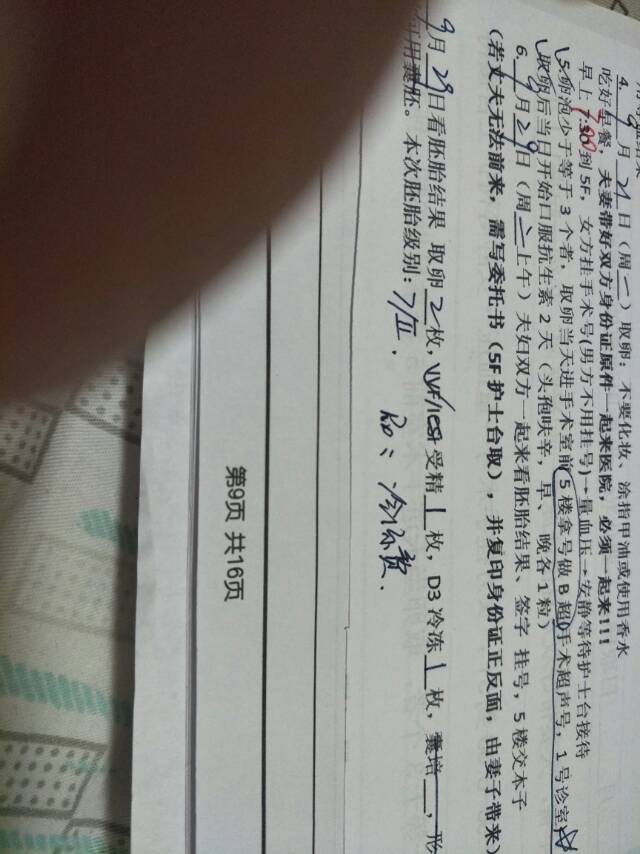 用
4. 9月21日（周二）取卵：不要化妆、涂指甲油或使用香水
吃好早餐，夫妻带好双方身份证原件一起来医院，必须一起来!!!
早上 7:30 7:00 到5F，女方挂手术号(男方不用挂号)→量血压→安静等待护士台接待
5.卵泡少于等于3个者，取卵当天进手术室前 5楼拿号做B超（手术超声号，1号诊室
取卵后当日开始口服抗生素2天（头孢呋辛，早、晚各1粒）
6. 9月29日（周二上午）夫妇双方一起来看胚胎结果、签字 挂号，5楼交本子
（若丈夫无法前来，需写委托书（5F护士台取），并复印身份证正反面，由妻子带来）
9月29日看胚胎结果 取卵2枚，IVF/ICSI受精1枚，D3冷冻1枚，囊培__，形
可用囊胚。本次胚胎级别：7/II.
冷冻费.
第9页 共16页